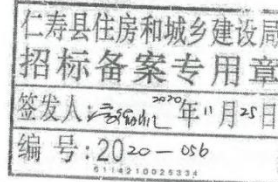 仁寿县住房和城乡建设局
招标备案专用章
签发人: 2020年11月25日
编号:2020-056
5114210025334